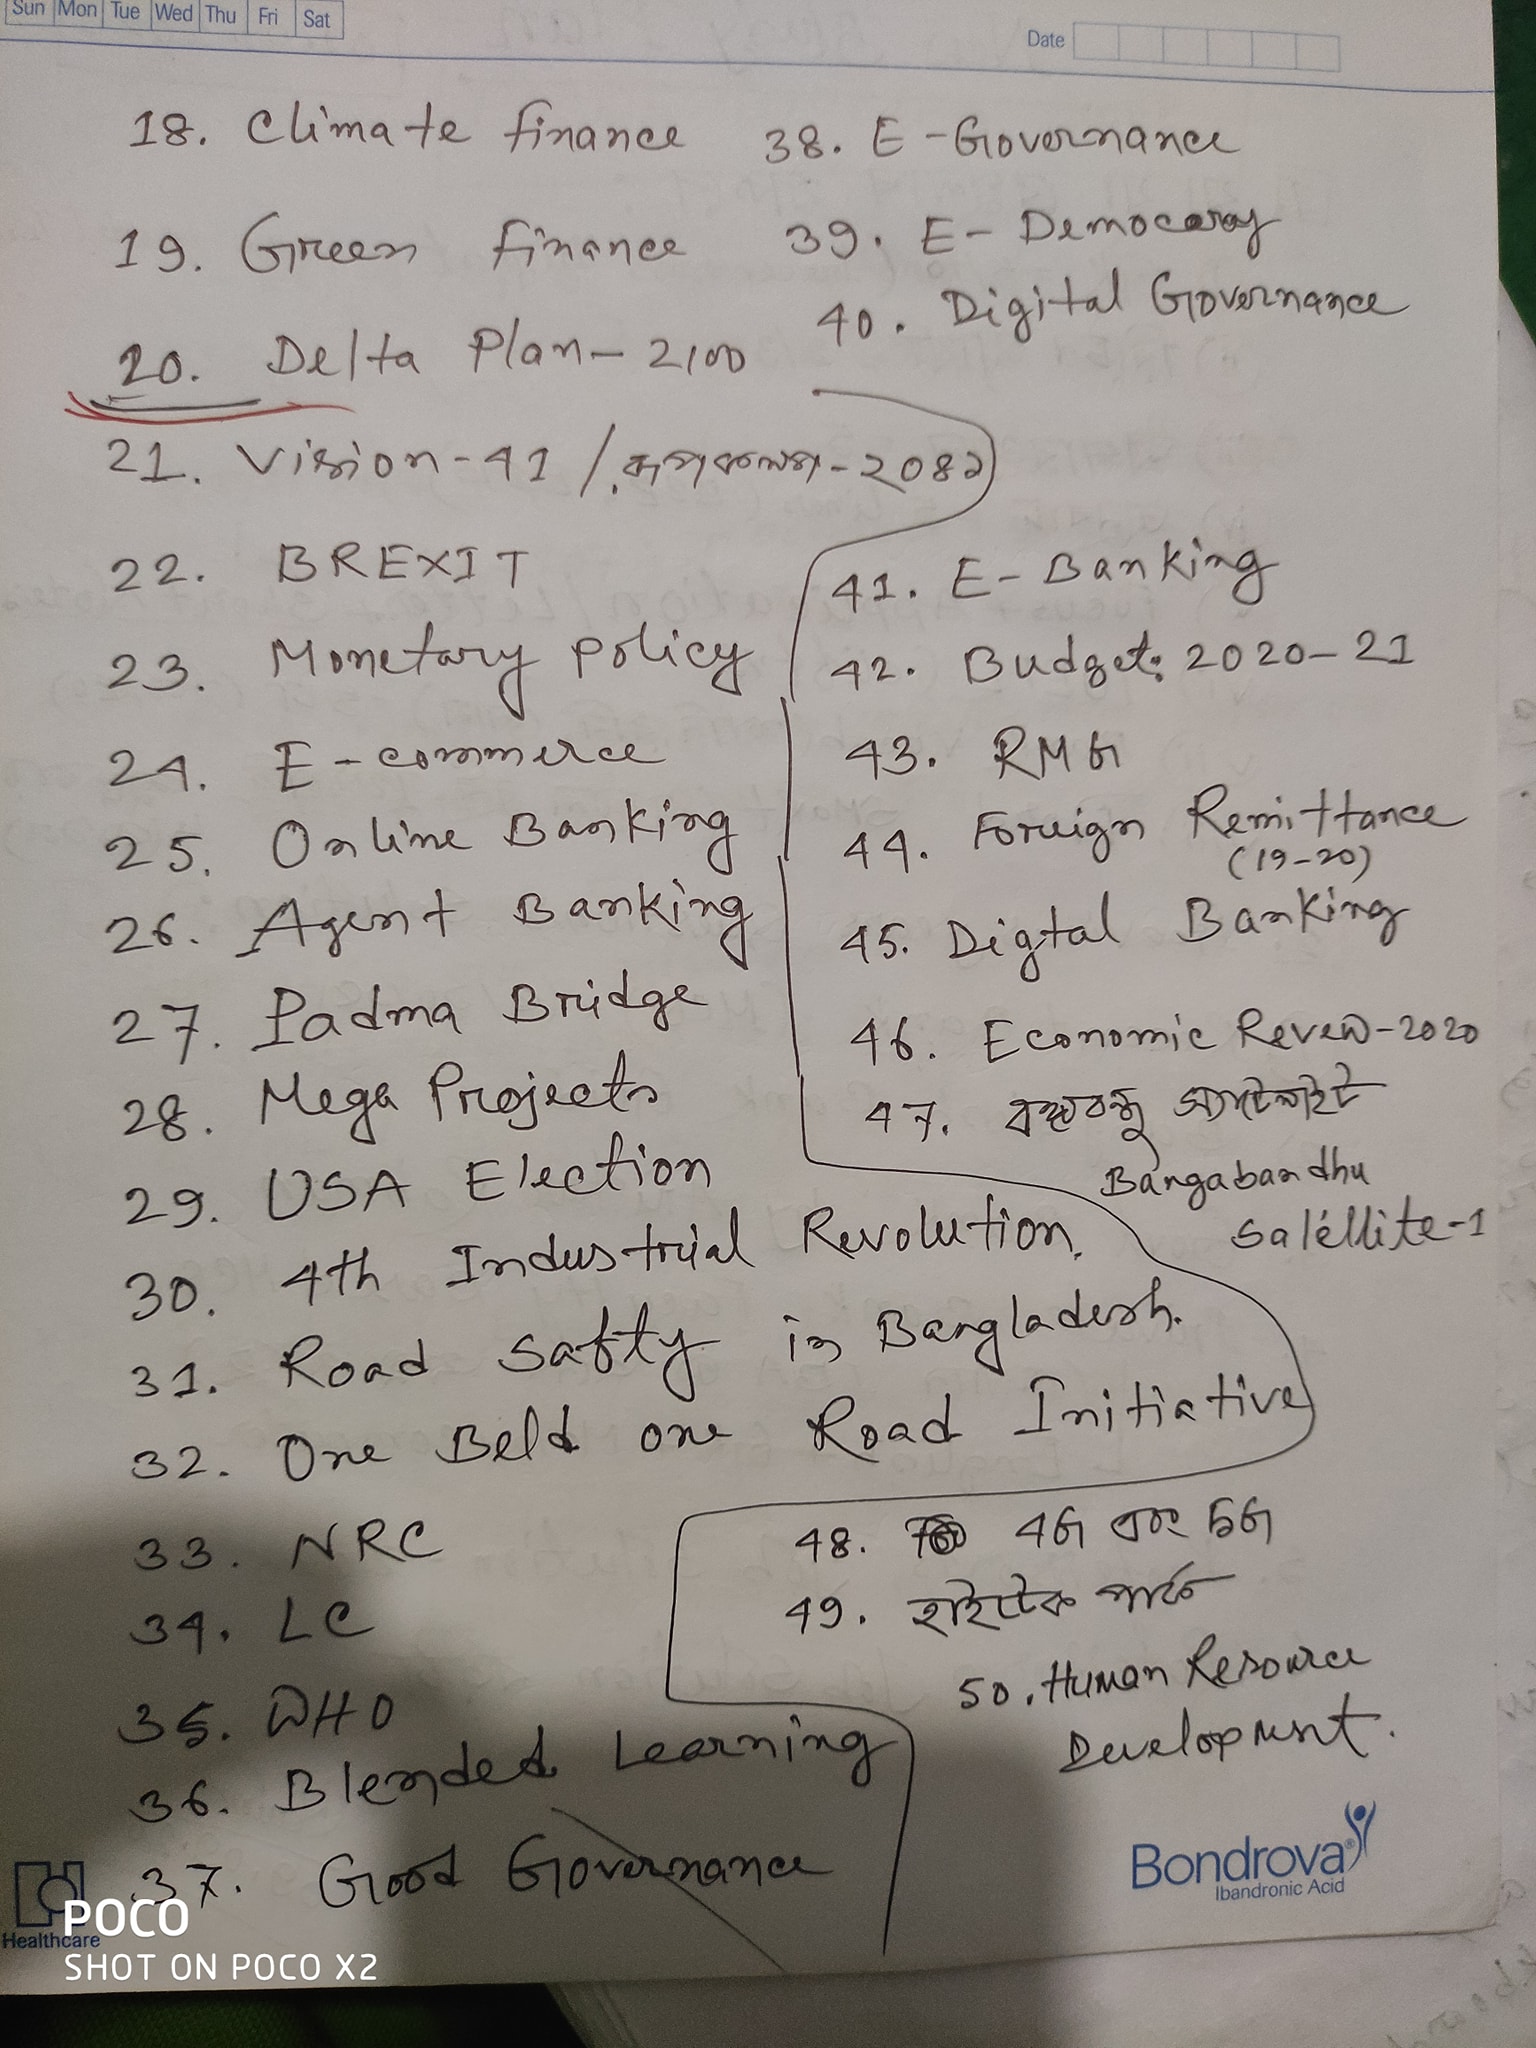 Sun Mon Tue Wed Thu Fri Sat
Date
18. Climate finance
19. Green finance
20. Delta Plan-2100
21. Vision-41 / রূপকল্প-২০৪১
22. BREXIT
23. Monetary policy
24. E-commerce
25. Online Banking
26. Agent Banking
27. Padma Bridge
28. Mega Projects
29. USA Election
30. 4th Industrial Revolution.
31. Road Safty in Bangladesh.
32. One Beld one Road Initiative
33. NRC
34. LC
35. WHO
36. Blended Learning
37. Good Governance
38. E-Governance
39. E-Democracy
40. Digital Governance
41. E-Banking
42. Budget: 2020-21
43. RMG
44. Foreign Remittance
(19-20)
45. Digtal Banking
46. Economic Revew-2020
47. বঙ্গবন্ধু স্যাটেলাইট
Bangabandhu
Satellite-1
48. 4G এবং 5G
49. হাইটেক পার্ক
50. Human Resource
Development.
Bondrova®
Ibandronic Acid
Healthcare
POCO
SHOT ON POCO X2